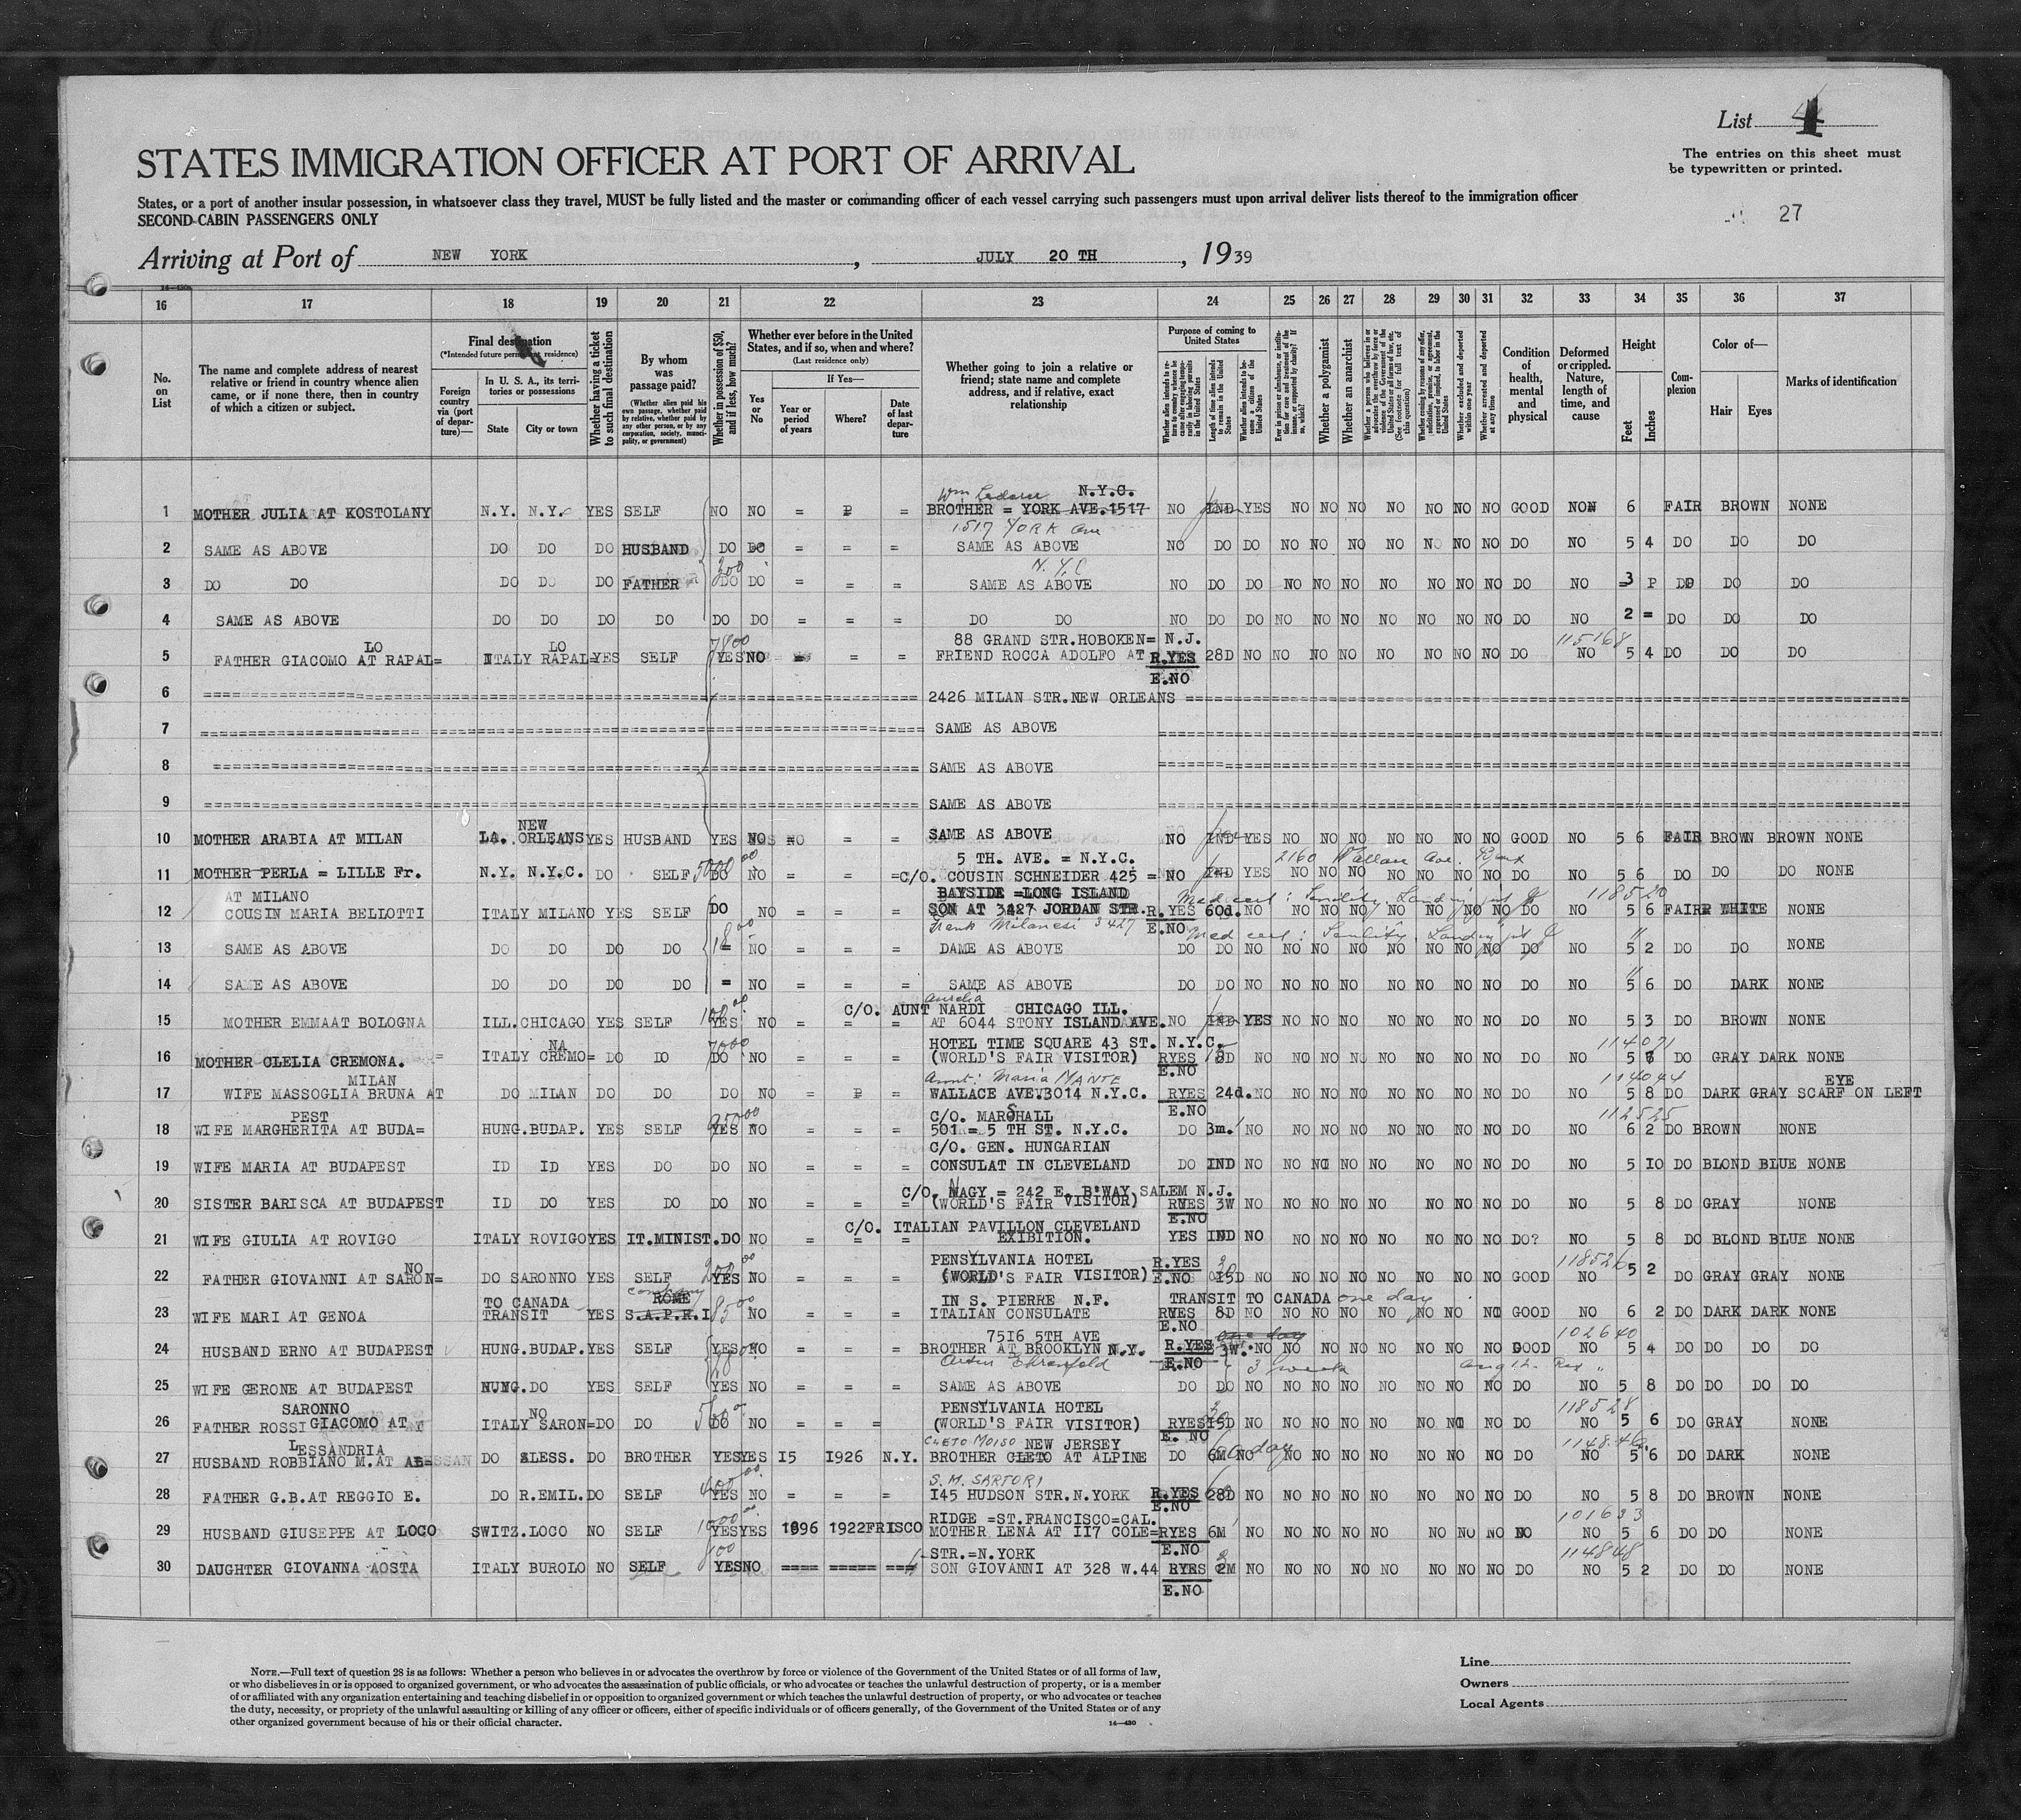 List 4
STATES IMMIGRATION OFFICER AT PORT OF ARRIVAL
The entries on this sheet must
be typewritten or printed.
States, or a port of another insular possession, in whatsoever class they travel, MUST be fully listed and the master or commanding officer of each vessel carrying such passengers must upon arrival deliver lists thereof to the immigration officer
SECOND-CABIN PASSENGERS ONLY
27
Arriving at Port of NEW YORK, JULY 20 TH, 1939
16 17 18 19 20 21 22 23 24 25 26 27 28 29 30 31 32 33 34 35 36 37
No. on List
The name and complete address of nearest relative or friend in country whence alien came, or if none there, then in country of which a citizen or subject.
Final destination
(*Intended future permanent residence)
Foreign country via (port of departure)—
In U. S. A., its territories or possessions
State City or town
Whether having a ticket to such final destination
By whom was passage paid?
(Whether alien paid his own passage, whether paid by relative, whether paid by any other person, or by any corporation, society, municipality, or government)
Whether in possession of $50, and if less, how much?
Whether ever before in the United States, and if so, when and where?
(Last residence only)
Yes or No
If Yes—
Year or period of years
Where?
Date of last departure
Whether going to join a relative or friend; state name and complete address, and if relative, exact relationship
Purpose of coming to United States
Length of time alien intends to remain in the United States
Whether alien intends to become a citizen of the United States
Whether a polygamist
Whether an anarchist
Whether excluded and deported within one year
Whether arrested and deported at any time
Condition of health, mental and physical
Deformed or crippled. Nature, length of time, and cause
Height
Feet Inches
Complexion
Color of—
Hair Eyes
Marks of identification
N.Y.C.
1 MOTHER JULIA AT KOSTOLANY N.Y. N.Y. YES SELF NO NO = = BROTHER = YORK AVE.1517 NO IND YES NO NO NO NO NO NO NO GOOD NON 6 FAIR BROWN NONE
1517 YORK Ave
2 SAME AS ABOVE DO DO DO HUSBAND DO DO = = = SAME AS ABOVE NO DO DO NO NO NO NO NO NO NO DO NO 5 4 DO DO DO
N.Y.C
3 DO DO DO DO DO FATHER 300 DO DO = = = SAME AS ABOVE NO DO DO NO NO NO NO NO NO NO DO NO 3 DO DO DO
4 SAME AS ABOVE DO DO DO DO DO DO = = = DO DO NO DO DO NO NO NO NO NO NO NO DO NO 2 = DO DO DO
LO LO 88 GRAND STR.HOBOKEN= N.J. 115168
5 FATHER GIACOMO AT RAPAL= ITALY RAPAL= YES SELF YES NO = = = FRIEND ROCCA ADOLFO AT R.YES 28D NO NO NO NO NO NO NO NO DO NO 5 4 DO DO DO
E.NO
6 2426 MILAN STR.NEW ORLEANS
7 SAME AS ABOVE
8 SAME AS ABOVE
9 SAME AS ABOVE
NEW
10 MOTHER ARABIA AT MILAN LA. ORLEANS YES HUSBAND YES NO = = SAME AS ABOVE NO IND YES NO NO NO NO NO NO NO GOOD NO 5 6 FAIR BROWN BROWN NONE
5 TH. AVE. = N.Y.C. 2160 Wallace Ave. Bronx
11 MOTHER PERLA = LILLE Fr. N.Y. N.Y.C. DO SELF DO NO = = = C/O. COUSIN SCHNEIDER 425 = NO IND YES NO NO NO NO NO NO NO DO NO 5 6 DO DO DO NONE
AT MILANO BAYSIDE =LONG ISLAND 118520
12 COUSIN MARIA BELLOTTI ITALY MILANO YES SELF DO NO = = = SON AT 3427 JORDAN STR. R.YES 60d. NO NO NO NO NO NO NO NO DO NO 5 6 FAIR WHITE NONE
Frank Milanesi 3427 E.NO Med cert: Senility
13 SAME AS ABOVE DO DO DO DO = NO = = = DAME AS ABOVE DO DO NO NO NO NO NO NO NO NO DO NO 5 2 DO DO NONE
14 SAME AS ABOVE DO DO DO DO = NO = = = SAME AS ABOVE DO DO NO NO NO NO NO NO NO NO DO NO 5 6 DO DARK NONE
Aurelia
C/O. AUNT NARDI CHICAGO ILL.
15 MOTHER EMMAAT BOLOGNA ILL. CHICAGO YES SELF YES NO = = = AT 6044 STONY ISLAND AVE. NO IND YES NO NO NO NO NO NO NO DO NO 5 3 DO BROWN NONE
NA HOTEL TIME SQUARE 43 ST. N.Y.C. 114071
16 MOTHER CLELIA CREMONA. ITALY CREMO= DO DO DO NO = = = (WORLD'S FAIR VISITOR) RYES NO NO NO NO NO NO NO NO DO NO 5 DO GRAY DARK NONE
E.NO
MILAN Aunt: Maria MANTE 114044 EYE
17 WIFE MASSOGLIA BRUNA AT DO MILAN DO DO DO NO = = WALLACE AVE.3014 N.Y.C. RYES 24d. NO NO NO NO NO NO NO NO DO NO 5 8 DO DARK GRAY SCARF ON LEFT
PEST C/O. MARSHALL E.NO 112525
18 WIFE MARGHERITA AT BUDA= HUNG. BUDAP. YES SELF YES NO = = = 501 = 5 TH ST. N.Y.C. DO 3m. NO NO NO NO NO NO NO NO DO NO 6 2 DO BROWN NONE
C/O. GEN. HUNGARIAN
19 WIFE MARIA AT BUDAPEST ID ID YES DO DO NO = = = CONSULAT IN CLEVELAND DO IND NO NO NO NO NO NO NO NO DO NO 5 IO DO BLOND BLUE NONE
C/O. NAGY = 242 E. B'WAY SALEM N.J.
20 SISTER BARISCA AT BUDAPEST ID DO YES DO DO NO = = = (WORLD'S FAIR VISITOR) RYES 3W NO NO NO NO NO NO NO NO DO NO 5 8 DO GRAY NONE
E.NO
C/O. ITALIAN PAVILLON CLEVELAND
21 WIFE GIULIA AT ROVIGO ITALY ROVIGO YES IT.MINIST. DO NO = = = EXIBITION. YES IND NO NO NO NO NO NO NO NO DO? NO 5 8 DO BLOND BLUE NONE
NO PENSYLVANIA HOTEL R.YES 118526
22 FATHER GIOVANNI AT SARON= DO SARONNO YES SELF YES NO = = = (WORLD'S FAIR VISITOR) E.NO 15D NO NO NO NO NO NO NO NO GOOD NO 5 2 DO GRAY GRAY NONE
TO CANADA company ROME IN S. PIERRE N.F. TRANSIT TO CANADA one day
23 WIFE MARI AT GENOA TRANSIT YES S.A.P.R.I NO = = = ITALIAN CONSULATE RYES 8D NO NO NO NO NO NO NO NO GOOD NO 6 2 DO DARK DARK NONE
E.NO
7516 5TH AVE one day 102640
24 HUSBAND ERNO AT BUDAPEST HUNG. BUDAP. YES SELF YES NO = = = BROTHER AT BROOKLYN N.Y. R.YES 3W. NO NO NO NO NO NO NO NO GOOD NO 5 4 DO DO DO DO
E.NO 3 weeks
25 WIFE GERONE AT BUDAPEST HUNG. DO YES SELF YES NO = = = SAME AS ABOVE DO DO NO NO NO NO NO NO NO NO DO NO 5 8 DO DO DO DO
SARONNO NO PENSYLVANIA HOTEL 118528
26 FATHER ROSSI GIACOMO AT ITALY SARON= DO DO DO NO = = = (WORLD'S FAIR VISITOR) RYES 15D NO NO NO NO NO NO NO NO DO NO 5 6 DO GRAY NONE
E. NO
LESSANDRIA CLETO MOISO NEW JERSEY 60 day
27 HUSBAND ROBBIANO M.AT AL= DO ALESS. DO BROTHER YES YES I5 I926 N.Y. BROTHER CLETO AT ALPINE DO 6M NO NO NO NO NO NO NO NO DO NO 5 6 DO DARK NONE
S. M. SARTORI
28 FATHER G.B.AT REGGIO E. DO R.EMIL. DO SELF YES NO = = = I45 HUDSON STR.N.YORK R.YES 28D NO NO NO NO NO NO NO NO DO NO 5 8 DO BROWN NONE
E.NO
RIDGE =ST.FRANCISCO=CAL. 101633
29 HUSBAND GIUSEPPE AT LOCO SWITZ. LOCO NO SELF YES YES 1896 1922 FRISCO MOTHER LENA AT II7 COLE= RYES 6M NO NO NO NO NO NO NO NO NO 5 6 DO DO NONE
E.NO
STR.=N.YORK 114848
30 DAUGHTER GIOVANNA AOSTA ITALY BUROLO NO SELF YES NO SON GIOVANNI AT 328 W.44 RYES 2M NO NO NO NO NO NO NO NO DO NO 5 2 DO DO NONE
E.NO
NOTE.—Full text of question 28 is as follows: Whether a person who believes in or advocates the overthrow by force or violence of the Government of the United States or of all forms of law,
or who disbelieves in or is opposed to organized government, or who advocates the assassination of public officials, or who advocates or teaches the unlawful destruction of property, or is a member
of or affiliated with any organization entertaining and teaching disbelief in or opposition to organized government or which teaches the unlawful destruction of property, or who advocates or teaches
the duty, necessity, or propriety of the unlawful assaulting or killing of any officer or officers, either of specific individuals or of officers generally, of the Government of the United States or of any
other organized government because of his or their official character.
14—430
Line
Owners
Local Agents